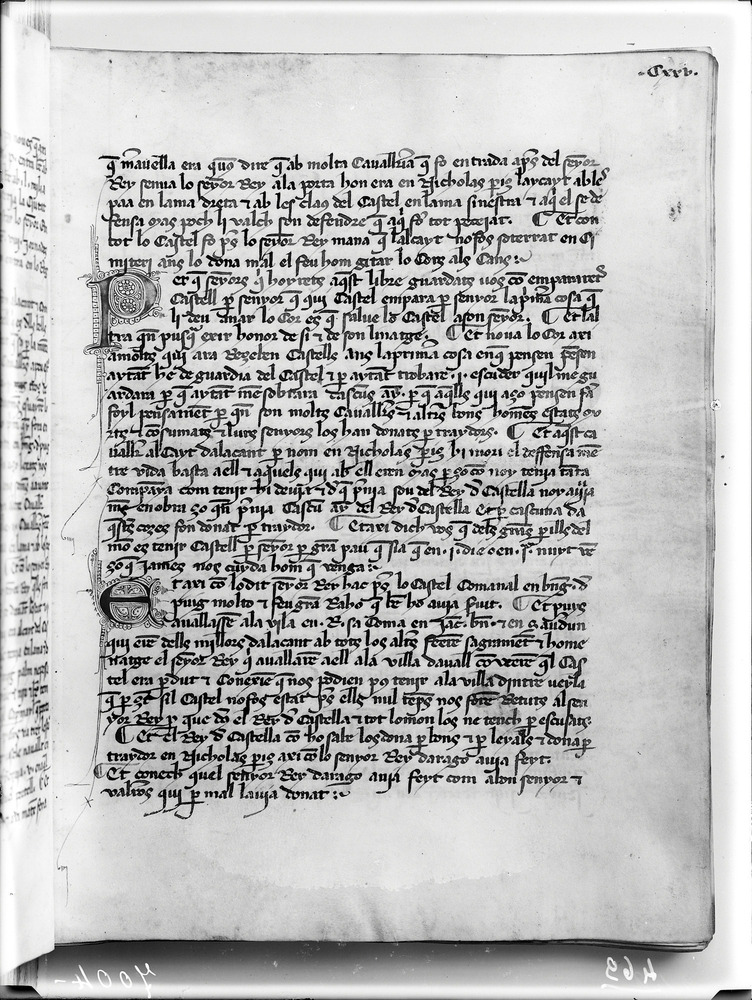 ·Cxxv·
q̄ mauella era quo dire q̄ ab molta Cauallria q̄ fo entrada aps del senyor
Rey senua lo senyor Rey ala porta hon era en Nicholas peris laycayt ab les
paa en lama dreta ⁊ ab les claus del Castel en lama sinestra ⁊ aq̄ el se de
fensa mas poch li valch son defendre q̄ aq̄ fo tot peceiat. ¶ Et con
tot lo Castel fo ps̄ lo senyor Rey mana q̄ lalcayt no fos soterrat en Ci
mitery ans lo dona mal el feu hom gitar lo Cors als Cans :
Per q̄ senyors q̄ hoyrets aqst libre guardats uos co emparatets
Castell p̄ senyor q̄ qui Castel empara p̄ senyor la p̄ma cosa q̄
li deu anar lo Cor es q̄ salue lo Castel a son senyor. ¶ Et lal
tra qn̄ pusq̄ exir honor de si ⁊ de son linatge. ¶ Et noua lo Cor axi
a molts qui ara Rezeben Castells ans la primera cosa en q̄ pensen pensen
aytāt he de guardia del Castel ⁊ p̄ aytāt trobare ·i· escuder quil me gu
ardara p̄ q̄ aytāt me sobrara cascus ay. p̄ q̄ aq̄lls qui aço pensen fā
foyl pensamēt p̄ qn̄ son molts Cauallrs ⁊ altrs bons homens estats mo
rts ⁊ cosumats ⁊ llurs senyors los han donats p̄ traydors. ¶ Et aqst ca
uallr alCayt dalacant p̄ nom en Nicholas peris hi mori el deffensa mē
tre vida basta a ell ⁊ aquels qui ab ell eren mas p̄ ço co noy tenia tāta
Companya com tenir hi deuia ⁊ d q̄ p̄nia sou del Rey d Castella noy auia
mes en obra ço qn̄ p̄nia Cascū ay del Rey d Castella et p̄ cascuna da
qstes cozes fon donat p̄ traydor. ¶ Et axi dich uos q̄ dels grās perills del
mo es tenir Castell p̄ senyor p̄ gra pau q̄ sia q̄ en ·i· die o en ·i· nuyt ve
ço q̄ James nos cuyda hom q̄ venga :
Et axi co lo dit senyor Rey hac ps̄ lo Castel Comanal en bng̃ d
puig molto ⁊ feu gra Raho q̄ be ho auia seruit. ¶ Et puys
auallassē ala vila en R. sa Coma en Jac. bn̄. ⁊ en S. audun
qui eren dells millors dalacant ab tots los altrs fēere sagrament ⁊ home
natge el senyor Rey q̄ auallarē a ell ala villa dauall co veere ql Cas
tel era p̄dut ⁊ Conexie q̄ nos podien pus tenir ala villa dintre uerla
q̄ p̄ çt sil Castel no fos estat ps̄ ells nul temps nos fore Retuts al sen
yor Rey p̄ que do el Rey d Castella ⁊ tot lo mon los ne tench p̄ escusats.
¶ Et el Rey d Castella co ho sabe los dona p̄ bons ⁊ p̄ leyals ⁊ dona p̄
traydor en Nicholas peris axi co lo senyor Rey darago auia feyt.
¶ Et conech quel senyor Rey darago auia feyt com a bon senyor ⁊
valeros qui p̄ mal lauia donat :
7004-
463